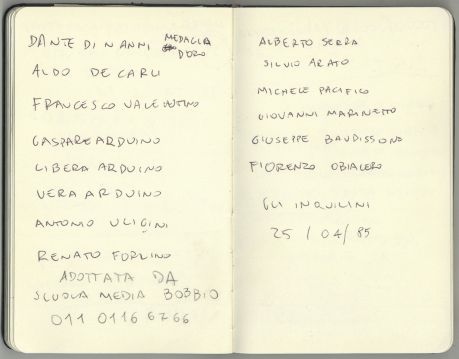 DANTE DI NANNI MEDAGLIA
D'ORO
ALDO DE CARLI
FRANCESCO VALENTINO
GASPARE ARDUINO
LIBERA ARDUINO
VERA ARDUINO
ANTONIO ULIGINI
RENATO FORLINO
ADOTTATA DA
SCUOLA MEDIA BOBBIO
011 0116 6766
ALBERTO SERRA
SILVIO ARATO
MICHELE PACIFICO
GIOVANNI MARINETTO
GIUSEPPE BAUDISSONO
FIORENZO OBIALERO
GLI INQUILINI
25 / 04 / 85